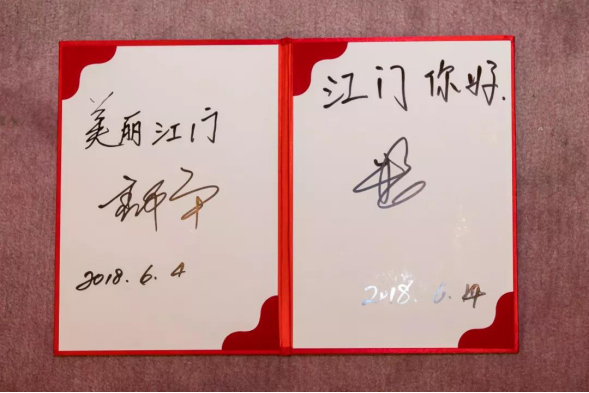 美丽江门
2018.6.4
江门你好.
2018.6.4